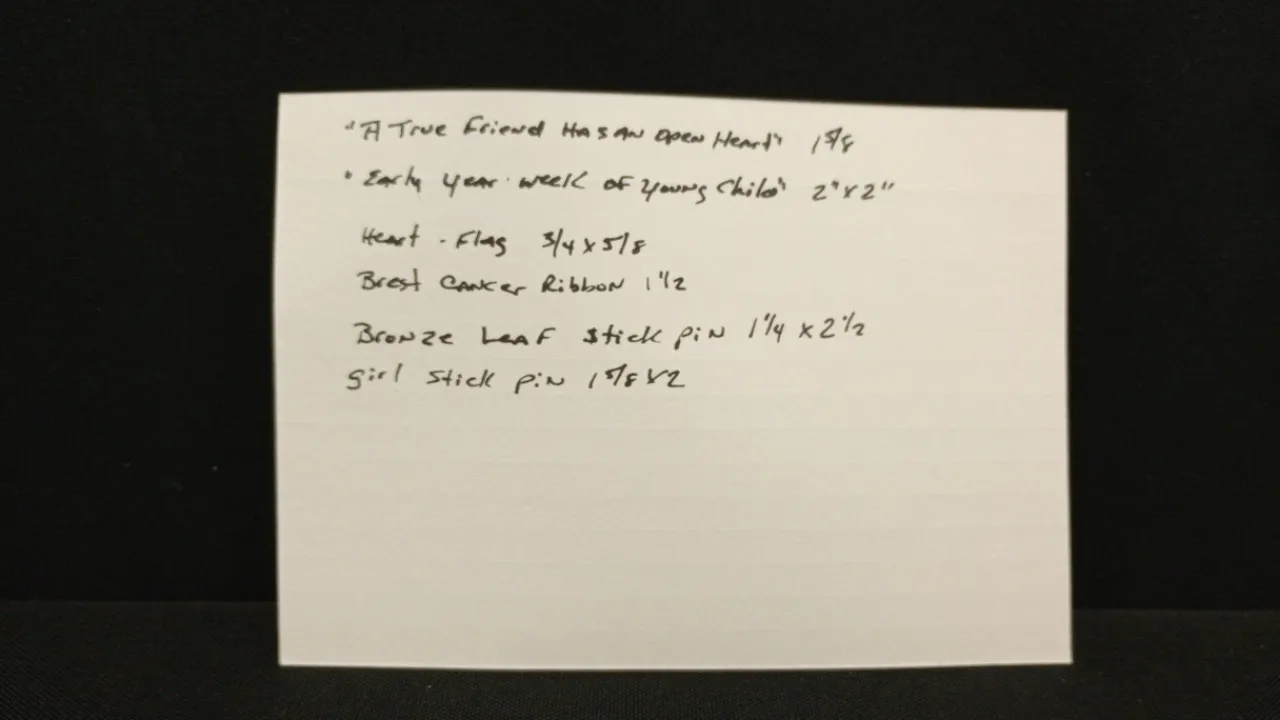 "A True Friend Has An Open Heart" 1 5/8
"Early Year. week of Young Child" 2" x 2"
Heart - Flag 3/4 x 5/8
Brest Cancer Ribbon 1 1/2
Bronze Leaf Stick pin 1 1/4 x 2 1/2
girl stick pin 1 5/8 x 2